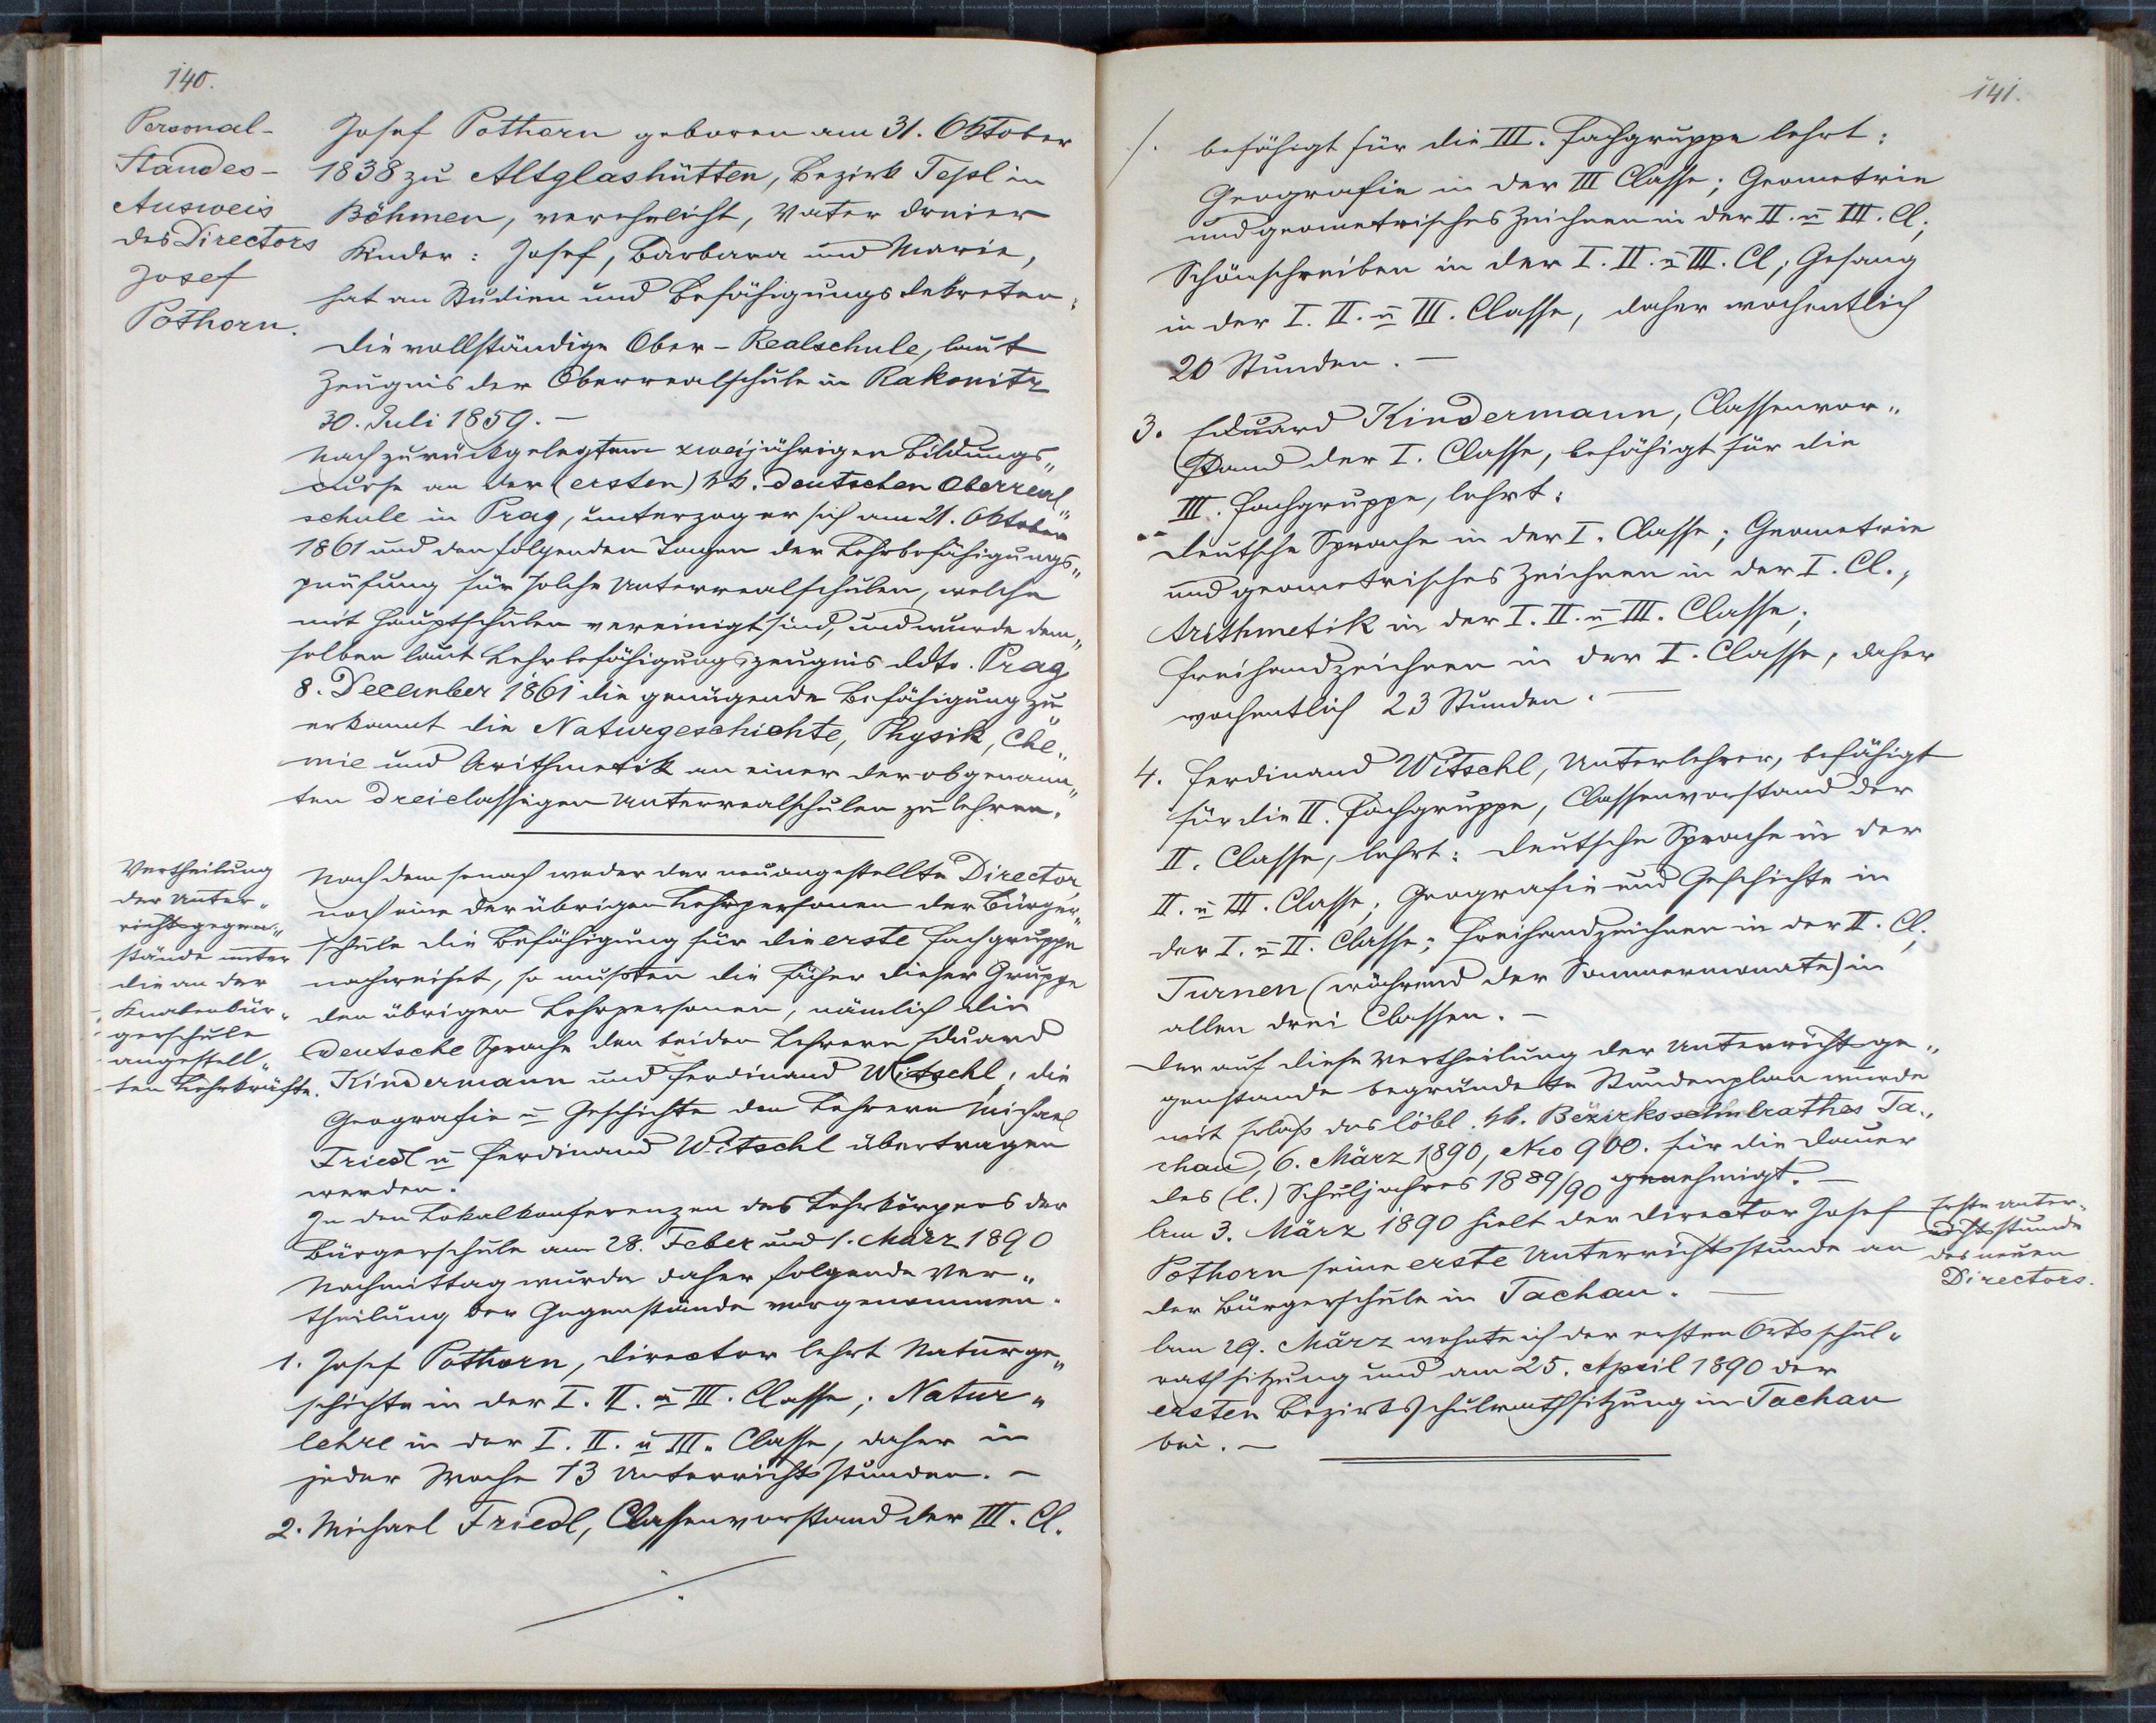 140.
Personal-
Standes-
Ausweis
des Directors
Josef
Pothorn.
Josef Pothorn geboren am 31. Oktober
1838 zu Altglashütten, Bezirk Tepl in
Böhmen, verehelicht, Vater dreier
Kinder: Josef, Barbara und Marie,
hat an Studien und Befähigungsdekreten:
Die vollständige Ober-Realschule, laut
Zeugnis der Oberrealschule in Rakonitz
30. Juli 1859. –
Nach zurückgelegtem zweijährigen Bildungs„
curse an der (ersten) kk. deutschen Oberreal„
schule in Prag, unterzog er sich am 21. Oktober
1861 und den folgenden Tagen der Lehrbefähigungs„
prüfung für solche Unterrealschulen, welche
mit Hauptschulen vereinigt sind, und wurde dem„
selben laut Lehrbefähigungszeugnis ddto. Prag
8. December 1861 die genügende Befähigung zu„
erkannt die Naturgeschichte, Physik, Che„
mie und Arithmetik an einer der obgenann„
ten dreiclassigen Unterrealschulen zu lehren.
Vertheilung
der Unter„
richtsgegen„
stände unter
die an der
Knabenbür„
gerschule
angestell„
ten Lehrkräfte.
Nach dem sonach weder der neuangestellte Director,
noch eine der übrigen Lehrpersonen der Bürger„
schule die Befähigung für die erste Fachgruppe
nachweiset, so mußten die Fächer dieser Gruppe
den übrigen Lehrpersonen, nämlich die
deutsche Sprache den beiden Lehrern Eduard
Kindermann und Ferdinand Witschl, die
Geografie u Geschichte den Lehrern Michael
Friedl u Ferdinand Witschl übertragen
werden.
In den Lokalkonferenzen des Lehrkörpers der
Bürgerschule am 28. Feber und 1. März 1890
Nachmittag wurde daher folgende Ver„
theilung der Gegenstände vorgenommen.
1. Josef Pothorn, Director lehrt Naturge„
schichte in der I. II. u III. Classe; Natur„
lehre in der I. II. u III. Classe, daher in
jeder Woche 13 Unterrichtsstunden. –
2. Michael Friedl, Classenvorstand der III. Cl.
./.
141.
/. befähigt für die III. Fachgruppe lehrt:
Geografie in der III Classe; Geometrie
und geometrisches Zeichnen in der II. u III. Cl.;
Schönschreiben in der I. II. u III. Cl; Gesang
in der I. II. u III. Classe, daher wochentlich
20 Stunden. –
3. Eduard Kindermann, Classenvor„
stand der I. Classe, befähigt für die
III. Fachgruppe, lehrt:
Deutsche Sprache in der I. Classe; Geometrie
und geometrisches Zeichnen in der I. Cl.;
Arithmetik in der I. II. u III. Classe;
Freihandzeichnen in der I. Classe, daher
wochentlich 23 Stunden. –
4. Ferdinand Witschl, Unterlehrer, befähigt
für die II. Fachgruppe, Classenvorstand der
II. Classe, lehrt: Deutsche Sprache in der
II. u III. Classe; Geografie und Geschichte in
der I. u II. Classe; Freihandzeichnen in der II. Cl.;
Turnen (während der Sommermonate) in
allen drei Classen. –
Der auf diese Vertheilung der Unterrichtsge„
genstände begründete Stundenplan wurde
mit Erlaß des löbl. kk. Bezirksschulrathes Ta„
chau, 6. März 1890, Nro 900. für die Dauer
des (l.) Schuljahres 1889/90 genehmigt. –
Am 3. März 1890 hielt der Director Josef
Pothorn seine erste Unterrichtsstunde an
der Bürgerschule in Tachau. –
Erste Unter„
richtsstunde
des neuen
Directors.
Am 29. März wohnte ich der ersten Ortsschul„
rathsitzung und am 25. April 1890 der
ersten Bezirksschulrathsitzung in Tachau
bei. –